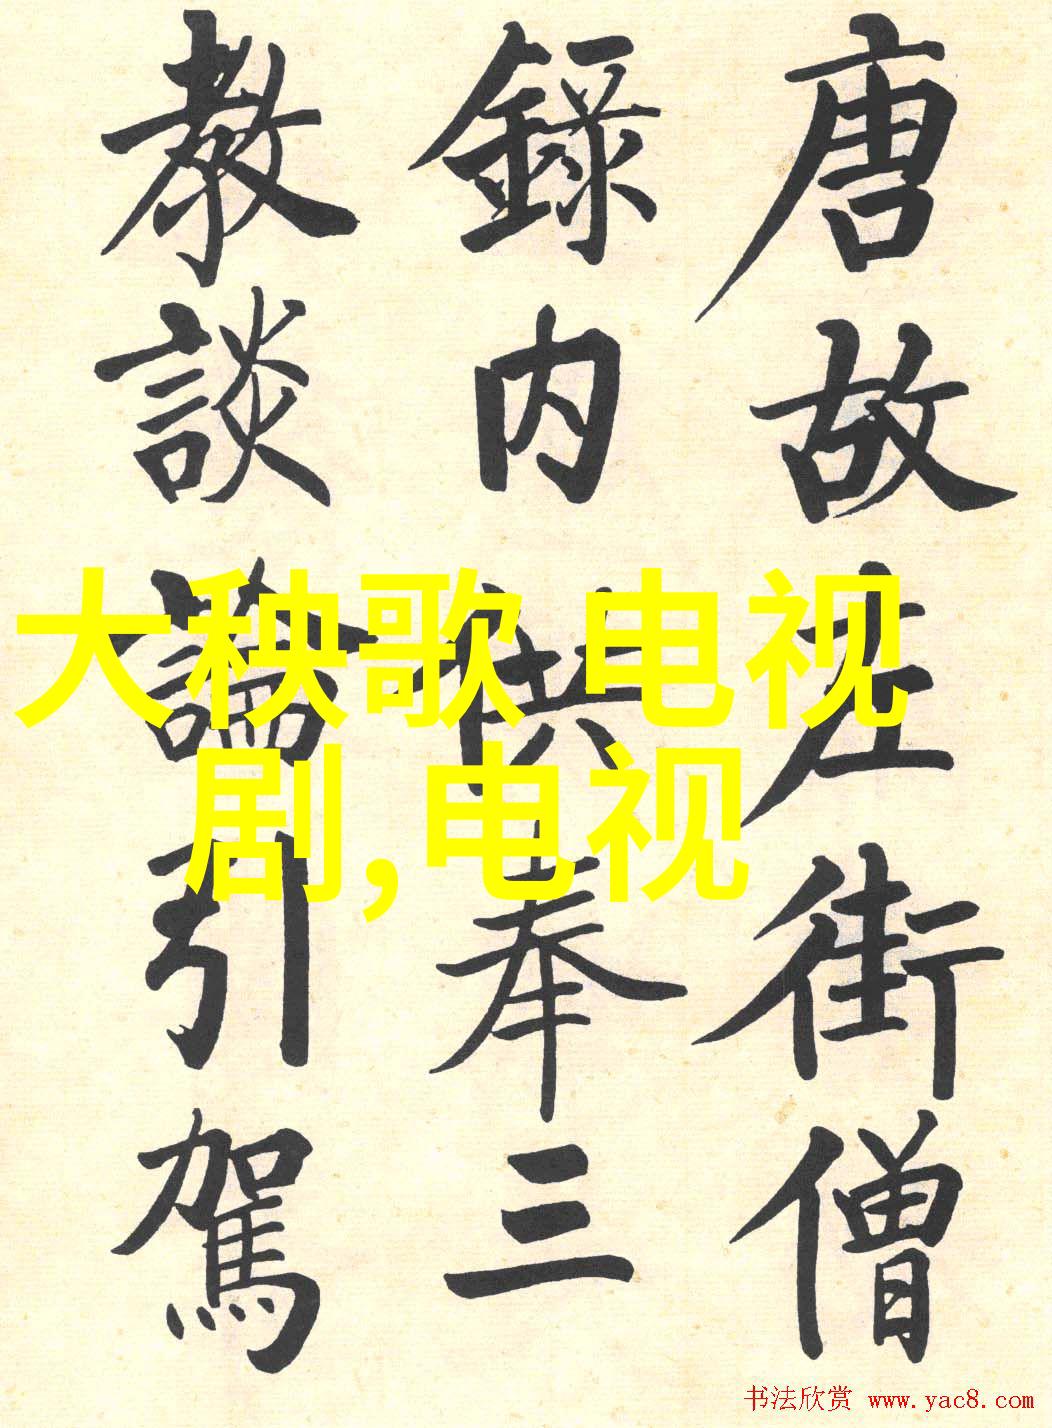 唐故左街僧
錄内供奉三
教談論引駕
大秧歌 电视
剧,电视
书法欣赏 www.yac8.com